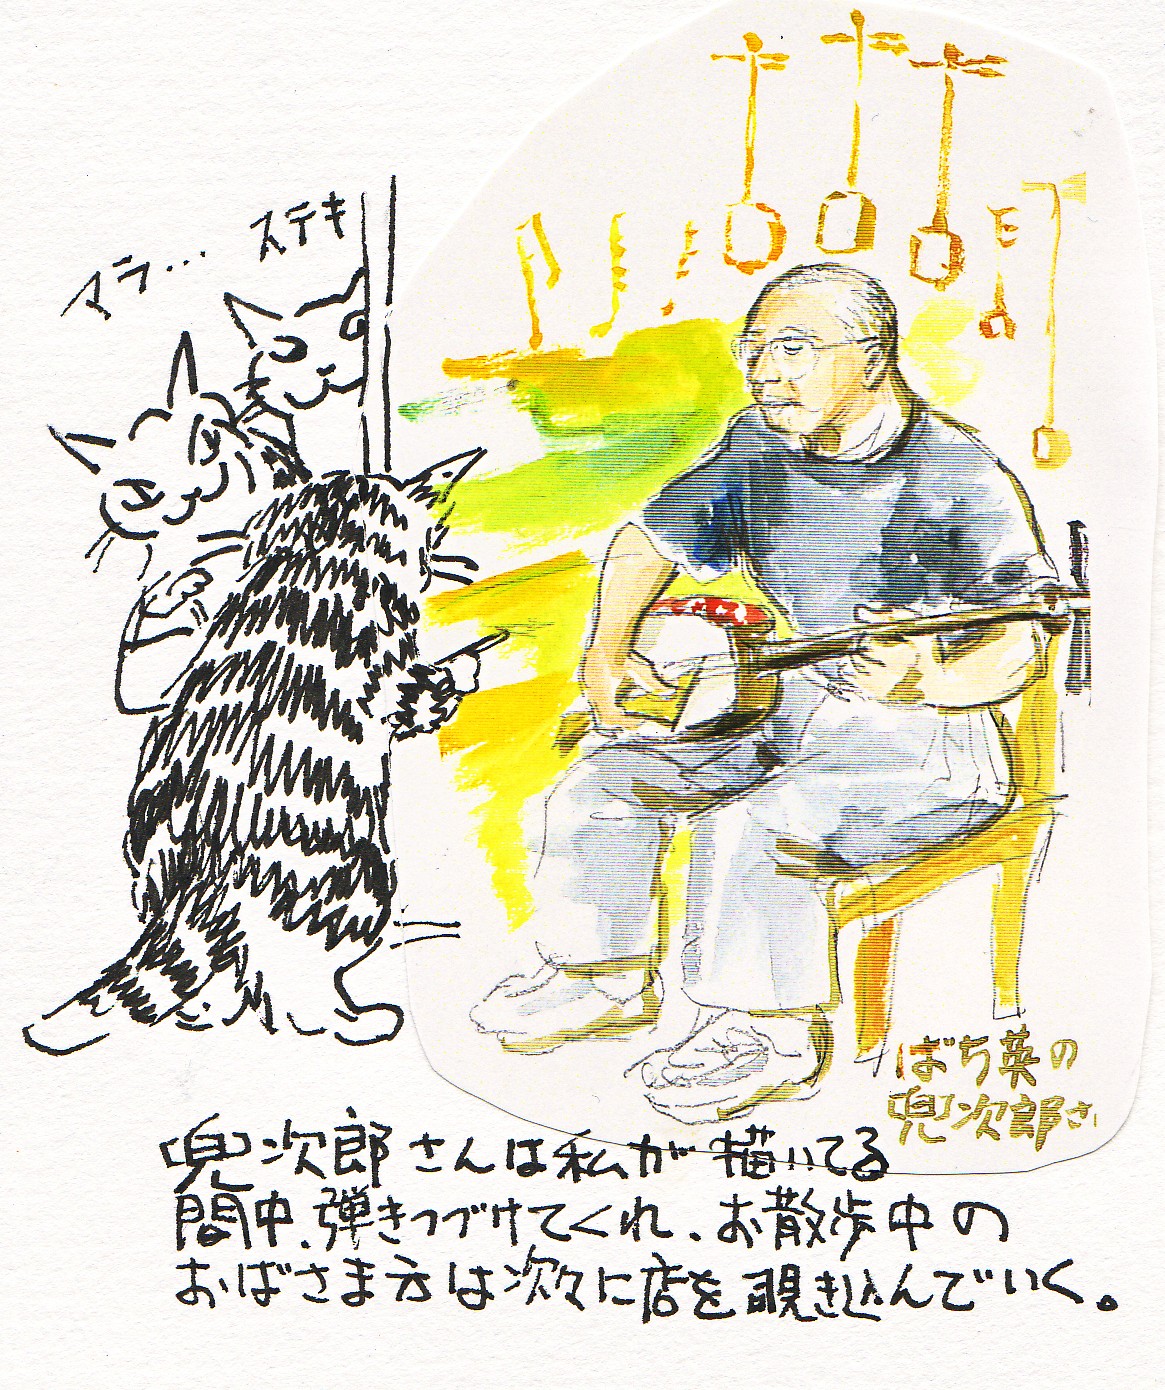 マラ… ステキ
ばち英の
兜次郎さ
兜次郎さんは私が描いてる
間中、弾きつづけてくれ、お散歩中の
おばさま方は次々に店を覗き込んでいく。